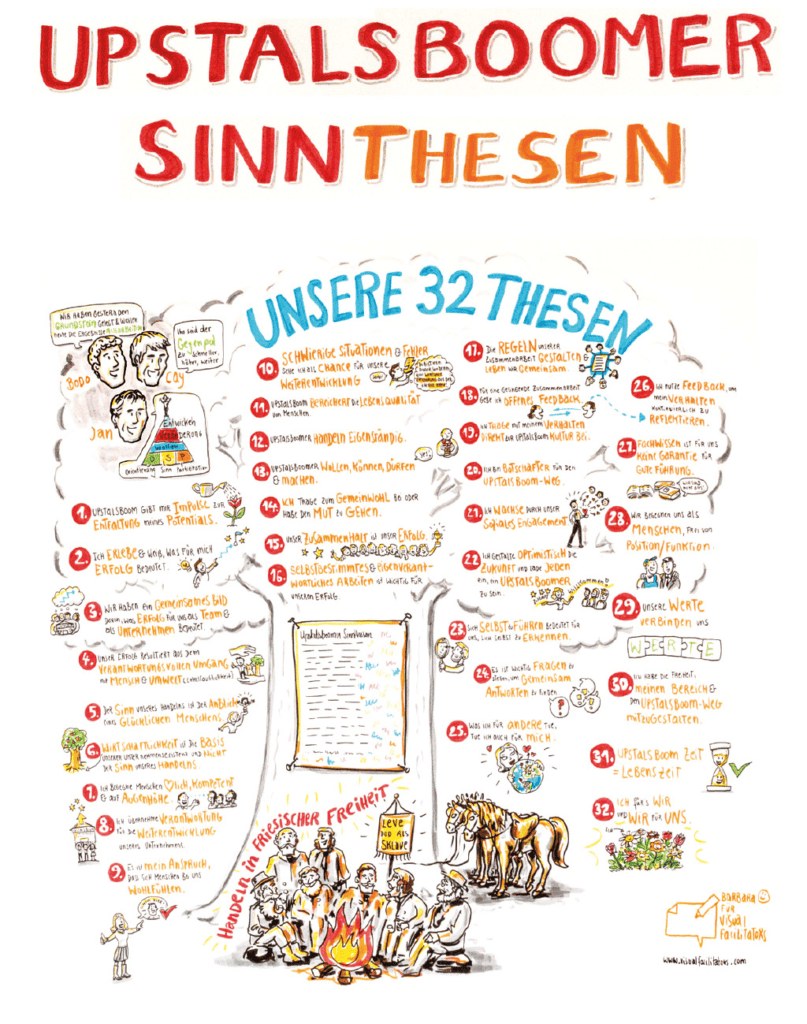 UPSTALSBOOMER
SINNTHESEN
UNSERE 32 THESEN
WIR HABEN GESTERN DEN
GRUNDSTEIN GELEGT & WOLLEN
HEUTE DIE ERGEBNISSE
Wir sind der
Gegenpol
zu "schneller,
höher, weiter"
BODO
Cay
Jan
Entwickeln
Veränderung
Wollen
O S P
Orientierung Sinn Partizipation
1. UPSTALSBOOM GIBT MIR IMPULSE ZUR
ENTFALTUNG MEINES POTENTIALS.
2. ICH ERLEBE & WEIß, WAS FÜR MICH
ERFOLG BEDEUTET.
3. WIR HABEN EIN GEMEINSAMES BILD
DAVON, WAS ERFOLG FÜR UNS ALS TEAM &
ALS UNTERNEHMEN BEDEUTET.
4. UNSER ERFOLG RESULTIERT AUS DEM
VERANTWORTUNGSVOLLEN UMGANG
MIT MENSCH & UMWELT
5. DER SINN UNSERES HANDELNS IST DER ANBLICK
EINES GLÜCKLICHEN MENSCHEN.
6. WIRTSCHAFTLICHKEIT IST DIE BASIS
UNSERER UNTERNEHMENSEXISTENZ UND NICHT
DER SINN UNSERES HANDELNS.
7. ICH BEGEGNE MENSCHEN ♡LICH, KOMPETENT
& AUF AUGENHÖHE.
8. ICH ÜBERNEHME VERANTWORTUNG
FÜR DIE WEITERENTWICKLUNG
UNSERES UNTERNEHMENS.
9. ES IST MEIN ANSPRUCH,
DASS SICH MENSCHEN BEI UNS
WOHLFÜHLEN.
10. SCHWIERIGE SITUATIONEN & FEHLER
SEHE ICH ALS CHANCE FÜR UNSERE
WEITERENTWICKLUNG
11. UPSTALSBOOM BEREICHERT DIE LEBENSQUALITÄT
VON MENSCHEN.
12. UPSTALSBOOMER HANDELN EIGENSTÄNDIG.
13. UPSTALSBOOMER WOLLEN, KÖNNEN, DÜRFEN
& MACHEN.
Yes!
14. ICH TRAGE ZUM GEMEINWOHL BEI ODER
HABE DEN MUT ZU GEHEN.
15. UNSER ZUSAMMENHALT IST UNSER ERFOLG.
16. SELBSTBESTIMMTES & EIGENVERANT-
WORTLICHES ARBEITEN IST WICHTIG FÜR
UNSEREN ERFOLG.
Upstalsboomer Sinnthesen
17. DIE REGELN UNSERER
ZUSAMMENARBEIT GESTALTEN &
LEBEN WIR GEMEINSAM.
18. FÜR EINE GELINGENDE ZUSAMMENARBEIT
GEBE ICH OFFENES FEEDBACK.
19. ICH TRAGE MIT MEINEM VERHALTEN
DIREKT ZUR UPSTALSBOOM KULTUR BEI.
20. ICH BIN BOTSCHAFTER FÜR DEN
UPSTALSBOOM-WEG.
21. ICH WACHSE DURCH UNSER
SOZIALES ENGAGEMENT
22. ICH GESTALTE OPTIMISTISCH DIE
ZUKUNFT UND LADE JEDEN
EIN, EIN UPSTALSBOOMER
ZU SEIN.
Willkommen
23. SICH SELBST ZU FÜHREN BEDEUTET FÜR
UNS, SICH SELBST ZU ERKENNEN.
24. ES IST WICHTIG FRAGEN ZU
STELLEN, UM GEMEINSAM
ANTWORTEN ZU FINDEN
25. WAS ICH FÜR ANDERE TUE,
TUE ICH AUCH FÜR MICH.
26. ICH NUTZE FEEDBACK, UM
MEIN VERHALTEN
KONTINUIERLICH ZU
REFLEKTIEREN.
27. FACHWISSEN IST FÜR UNS
KEINE GARANTIE FÜR
GUTE FÜHRUNG.
28. WIR BEGEGNEN UNS ALS
MENSCHEN, FREI VON
POSITION/FUNKTION.
29. UNSERE WERTE
VERBINDEN UNS
WERTE
30. ICH HABE DIE FREIHEIT,
MEINEN BEREICH &
DEN UPSTALSBOOM-WEG
MITZUGESTALTEN.
31. UPSTALSBOOM ZEIT
= LEBENSZEIT
32. ICH FÜRS WIR
UND WIR FÜR UNS.
Handeln in Friesischer Freiheit
LEVE
DOD AS
SKLAVE
BARBARA
FÜR
VISUAL
FACILITATORS
www.visualfacilitators.com